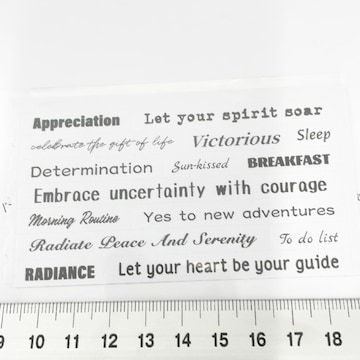 Appreciation Let your spirit soar
celebrate the gift of life Victorious Sleep
Determination Sun-kissed BREAKFAST
Embrace uncertainty with courage
Morning Routine Yes to new adventures
Radiate Peace And Serenity To do list
RADIANCE Let your heart be your guide
9 10 11 12 13 14 15 16 17 18